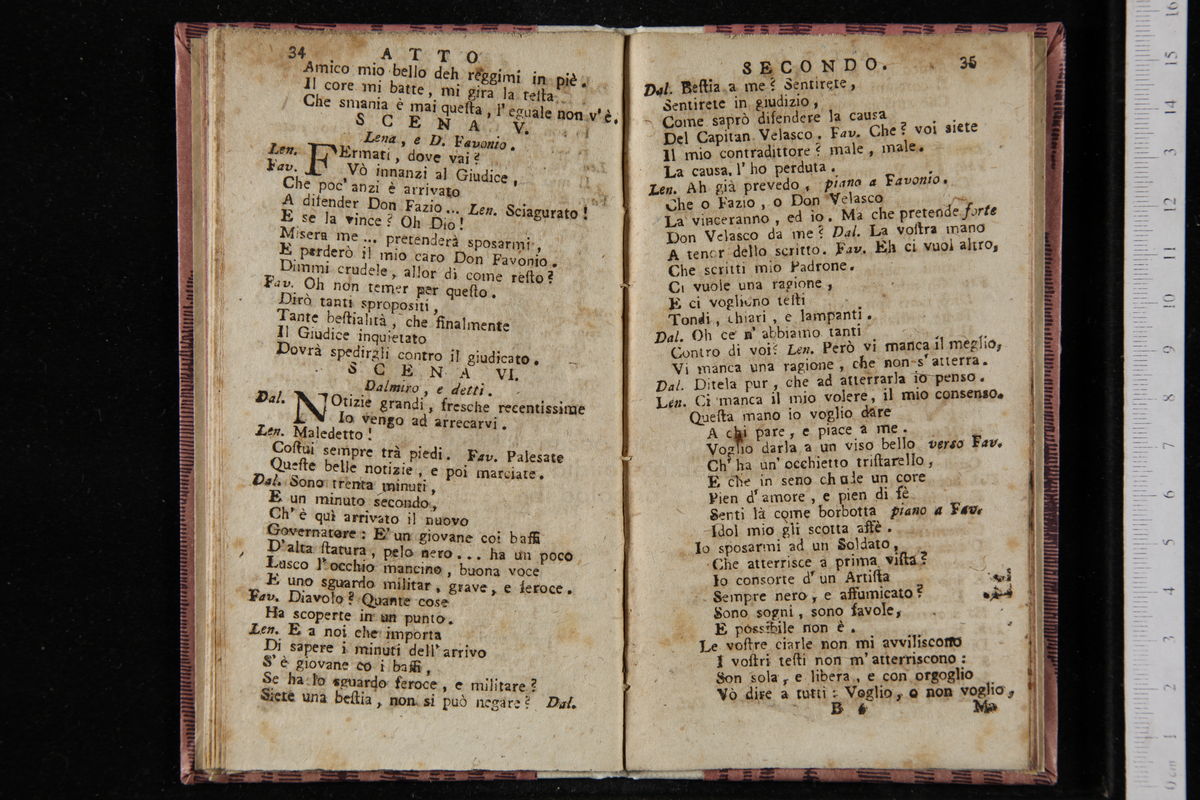 34 ATTO
Amico mio bello deh reggimi in piè.
Il core mi batte, mi gira la teſta
Che smania è mai queſta, l'eguale non v'è.
SCENA V.
Lena, e D. Favonio.
Len. FErmati, dove vai?
Fav. Vò innanzi al Giudice,
Che poc' anzi è arrivato
A difender Don Fazio... Len. Sciagurato!
E se la vince? Oh Dio!
Misera me... pretenderà sposarmi,
E perderò il mio caro Don Favonio.
Dimmi crudele, allor di come reſto?
Fav. Oh non temer per queſto.
Dirò tanti spropositi,
Tante beſtialità, che finalmente
Il Giudice inquietato
Dovrà spedirgli contro il giudicato.
SCENA VI.
Dalmiro, e detti.
Dal. NOtizie grandi, fresche recentissime
Io vengo ad arrecarvi.
Len. Maledetto!
Coſtui sempre trà piedi. Fav. Palesate
Queſte belle notizie, e poi marciate.
Dal. Sono trenta minuti,
E un minuto secondo,
Ch' è quì arrivato il nuovo
Governatore: E' un giovane coi baffi
D'alta ſtatura, pelo nero... ha un poco
Lusco l'occhio mancino, buona voce
E uno sguardo militar, grave, e feroce.
Fav. Diavolo? Quante cose
Ha scoperte in un punto.
Len. E a noi che importa
Di sapere i minuti dell'arrivo
S' è giovane co i baffi,
Se ha lo sguardo feroce, e militare?
Siete una beſtia, non si può negare? Dal.
SECONDO. 35
Dal. Beſtia a me? Sentirete,
Sentirete in giudizio,
Come saprò difendere la causa
Del Capitan Velasco. Fav. Che? voi siete
Il mio contradittore? male, male.
La causa l' ho perduta.
Len. Ah già prevedo, piano a Favonio.
Che o Fazio, o Don Velasco
La vinceranno, ed io. Ma che pretende forte
Don Velasco da me? Dal. La voſtra mano
A tenor dello scritto. Fav. Eh ci vuol altro,
Che scritti mio Padrone.
Ci vuole una ragione,
E ci vogliono teſti
Tondi, chiari, e lampanti.
Dal. Oh ce n' abbiamo tanti
Contro di voi? Len. Però vi manca il meglio,
Vi manca una ragione, che non s'atterra.
Dal. Ditela pur, che ad atterrarla io penso.
Len. Ci manca il mio volere, il mio consenso.
Queſta mano io voglio dare
A chi pare, e piace a me.
Voglio darla a un viso bello verso Fav.
Ch' ha un' occhietto triſtarello,
E che in seno chude un core
Pien d' amore, e pien di fè
Senti là come borbotta piano a Fav.
Idol mio gli scotta affè.
Io sposarmi ad un Soldato,
Che atterrisce a prima viſta?
Io consorte d' un Artiſta
Sempre nero, e affumicato?
Sono sogni, sono favole,
E possibile non è.
Le voſtre ciarle non mi avviliscono
I voſtri teſti non m' atterriscono:
Son sola, e libera, e con orgoglio
Vò dire a tutti: Voglio, o non voglio,
B Ma